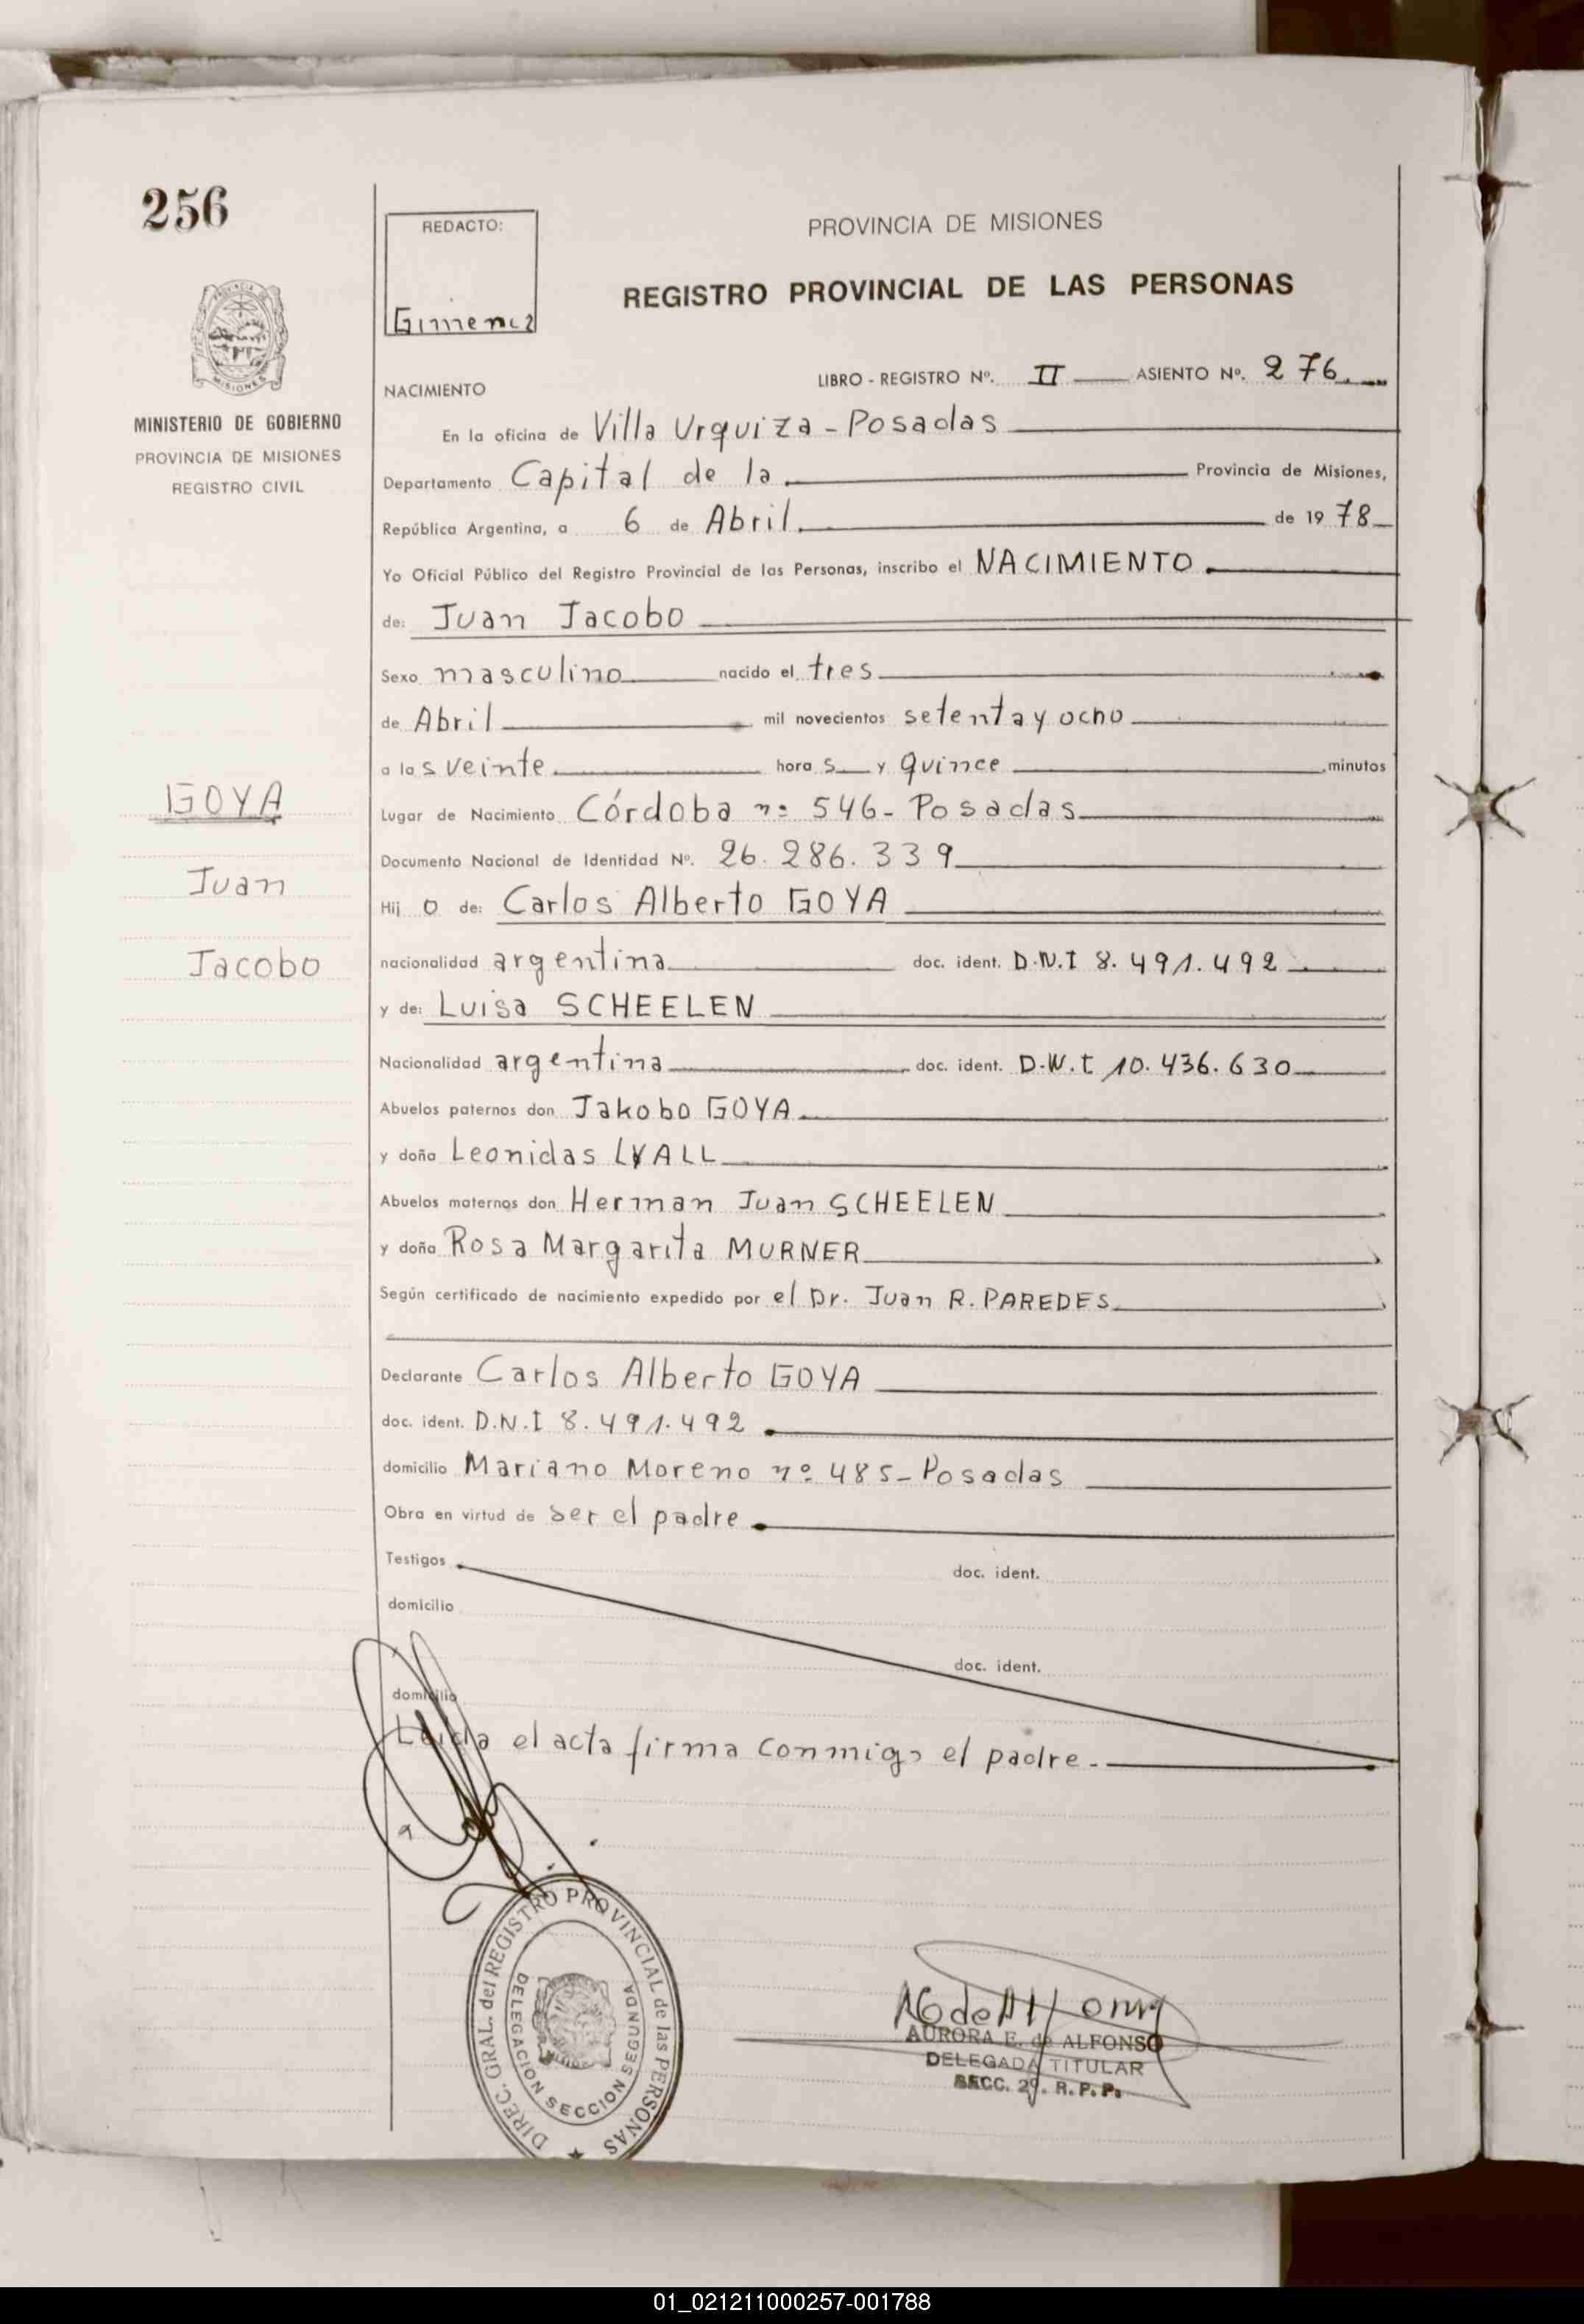 256
REDACTO:
Gimenez
PROVINCIA DE MISIONES
REGISTRO PROVINCIAL DE LAS PERSONAS
PROVINCIA DE
MISIONES
MINISTERIO DE GOBIERNO
PROVINCIA DE MISIONES
REGISTRO CIVIL
LIBRO - REGISTRO Nº. II ASIENTO Nº. 276.
NACIMIENTO
En la oficina de Villa Urquiza - Posadas
Departamento Capital de la Provincia de Misiones,
República Argentina, a 6 de Abril. de 1978
Yo Oficial Público del Registro Provincial de las Personas, inscribo el NACIMIENTO.
de: Juan Jacobo
Sexo masculino nacido el tres
de Abril mil novecientos setenta y ocho
a las veinte horas y quince minutos
GOYA
Juan
Jacobo
Lugar de Nacimiento Córdoba nº 546 - Posadas
Documento Nacional de Identidad Nº. 26.286.339
Hijo de: Carlos Alberto GOYA
nacionalidad argentina doc. ident. D.N.I 8.491.492
y de: Luisa SCHEELEN
Nacionalidad argentina doc. ident. D.N.I 10.436.630
Abuelos paternos don Jakobo GOYA
y doña Leonidas LYALL
Abuelos maternos don Herman Juan SCHEELEN
y doña Rosa Margarita MURNER
Según certificado de nacimiento expedido por el Dr. Juan R. PAREDES
Declarante Carlos Alberto GOYA
doc. ident. D.N.I 8.491.492
domicilio Mariano Moreno nº 485 - Posadas
Obra en virtud de ser el padre
Testigos doc. ident.
domicilio
doc. ident.
domicilio
Leida el acta firma conmigo el padre.
DIREC. GRAL. del REGISTRO PROVINCIAL de las PERSONAS
DELEGACION SECCION SEGUNDA
AURORA E. de ALFONSO
DELEGADA TITULAR
SECC. 2º. R. P. P.
01_021211000257-001788